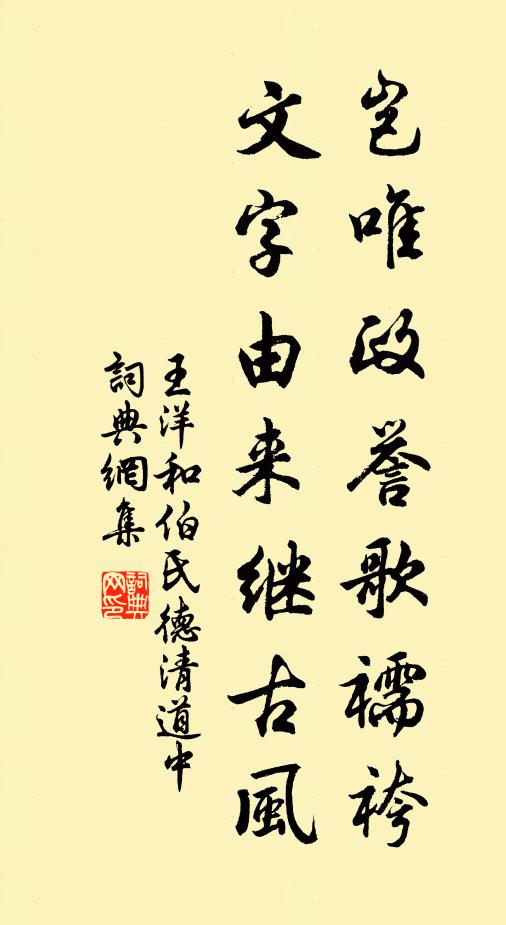 岂唯政誉歌襦袴
文字由来继古風
王洋和伯氏德清道中
詞典網集
詞典网印